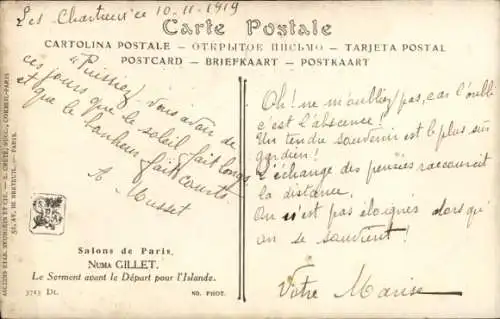 Les Chartreux ce 10-11-1919
Carte Postale
CARTOLINA POSTALE – ОТКРЫТОЕ ПИСЬМО – TARJETA POSTAL
POSTCARD – BRIEFKAART – POSTKAART
"Puissiez-vous avoir de
ces jours que le soleil fait longs
et que le bonheur fait courts
A Musset
Oh! ne m'oubliez pas, car l'oubli
c'est l'abscence!
Un tendre souvenir est le plus sûr
gardien!
L'échange des pensées raccourcit
la distance.
On n'est pas éloignés alors qu'
on se souvient!
Votre Marise
Salons de Paris.
NUMA GILLET.
Le Serment avant le Départ pour l'Islande.
3715 Dt.
ND. PHOT.
ANCIENS ETAB. NEURDEIN ET CIE. – E. CRÉTÉ, SUCC., CORBEIL-PARIS
52, AV. DE BRETEUIL. – PARIS.